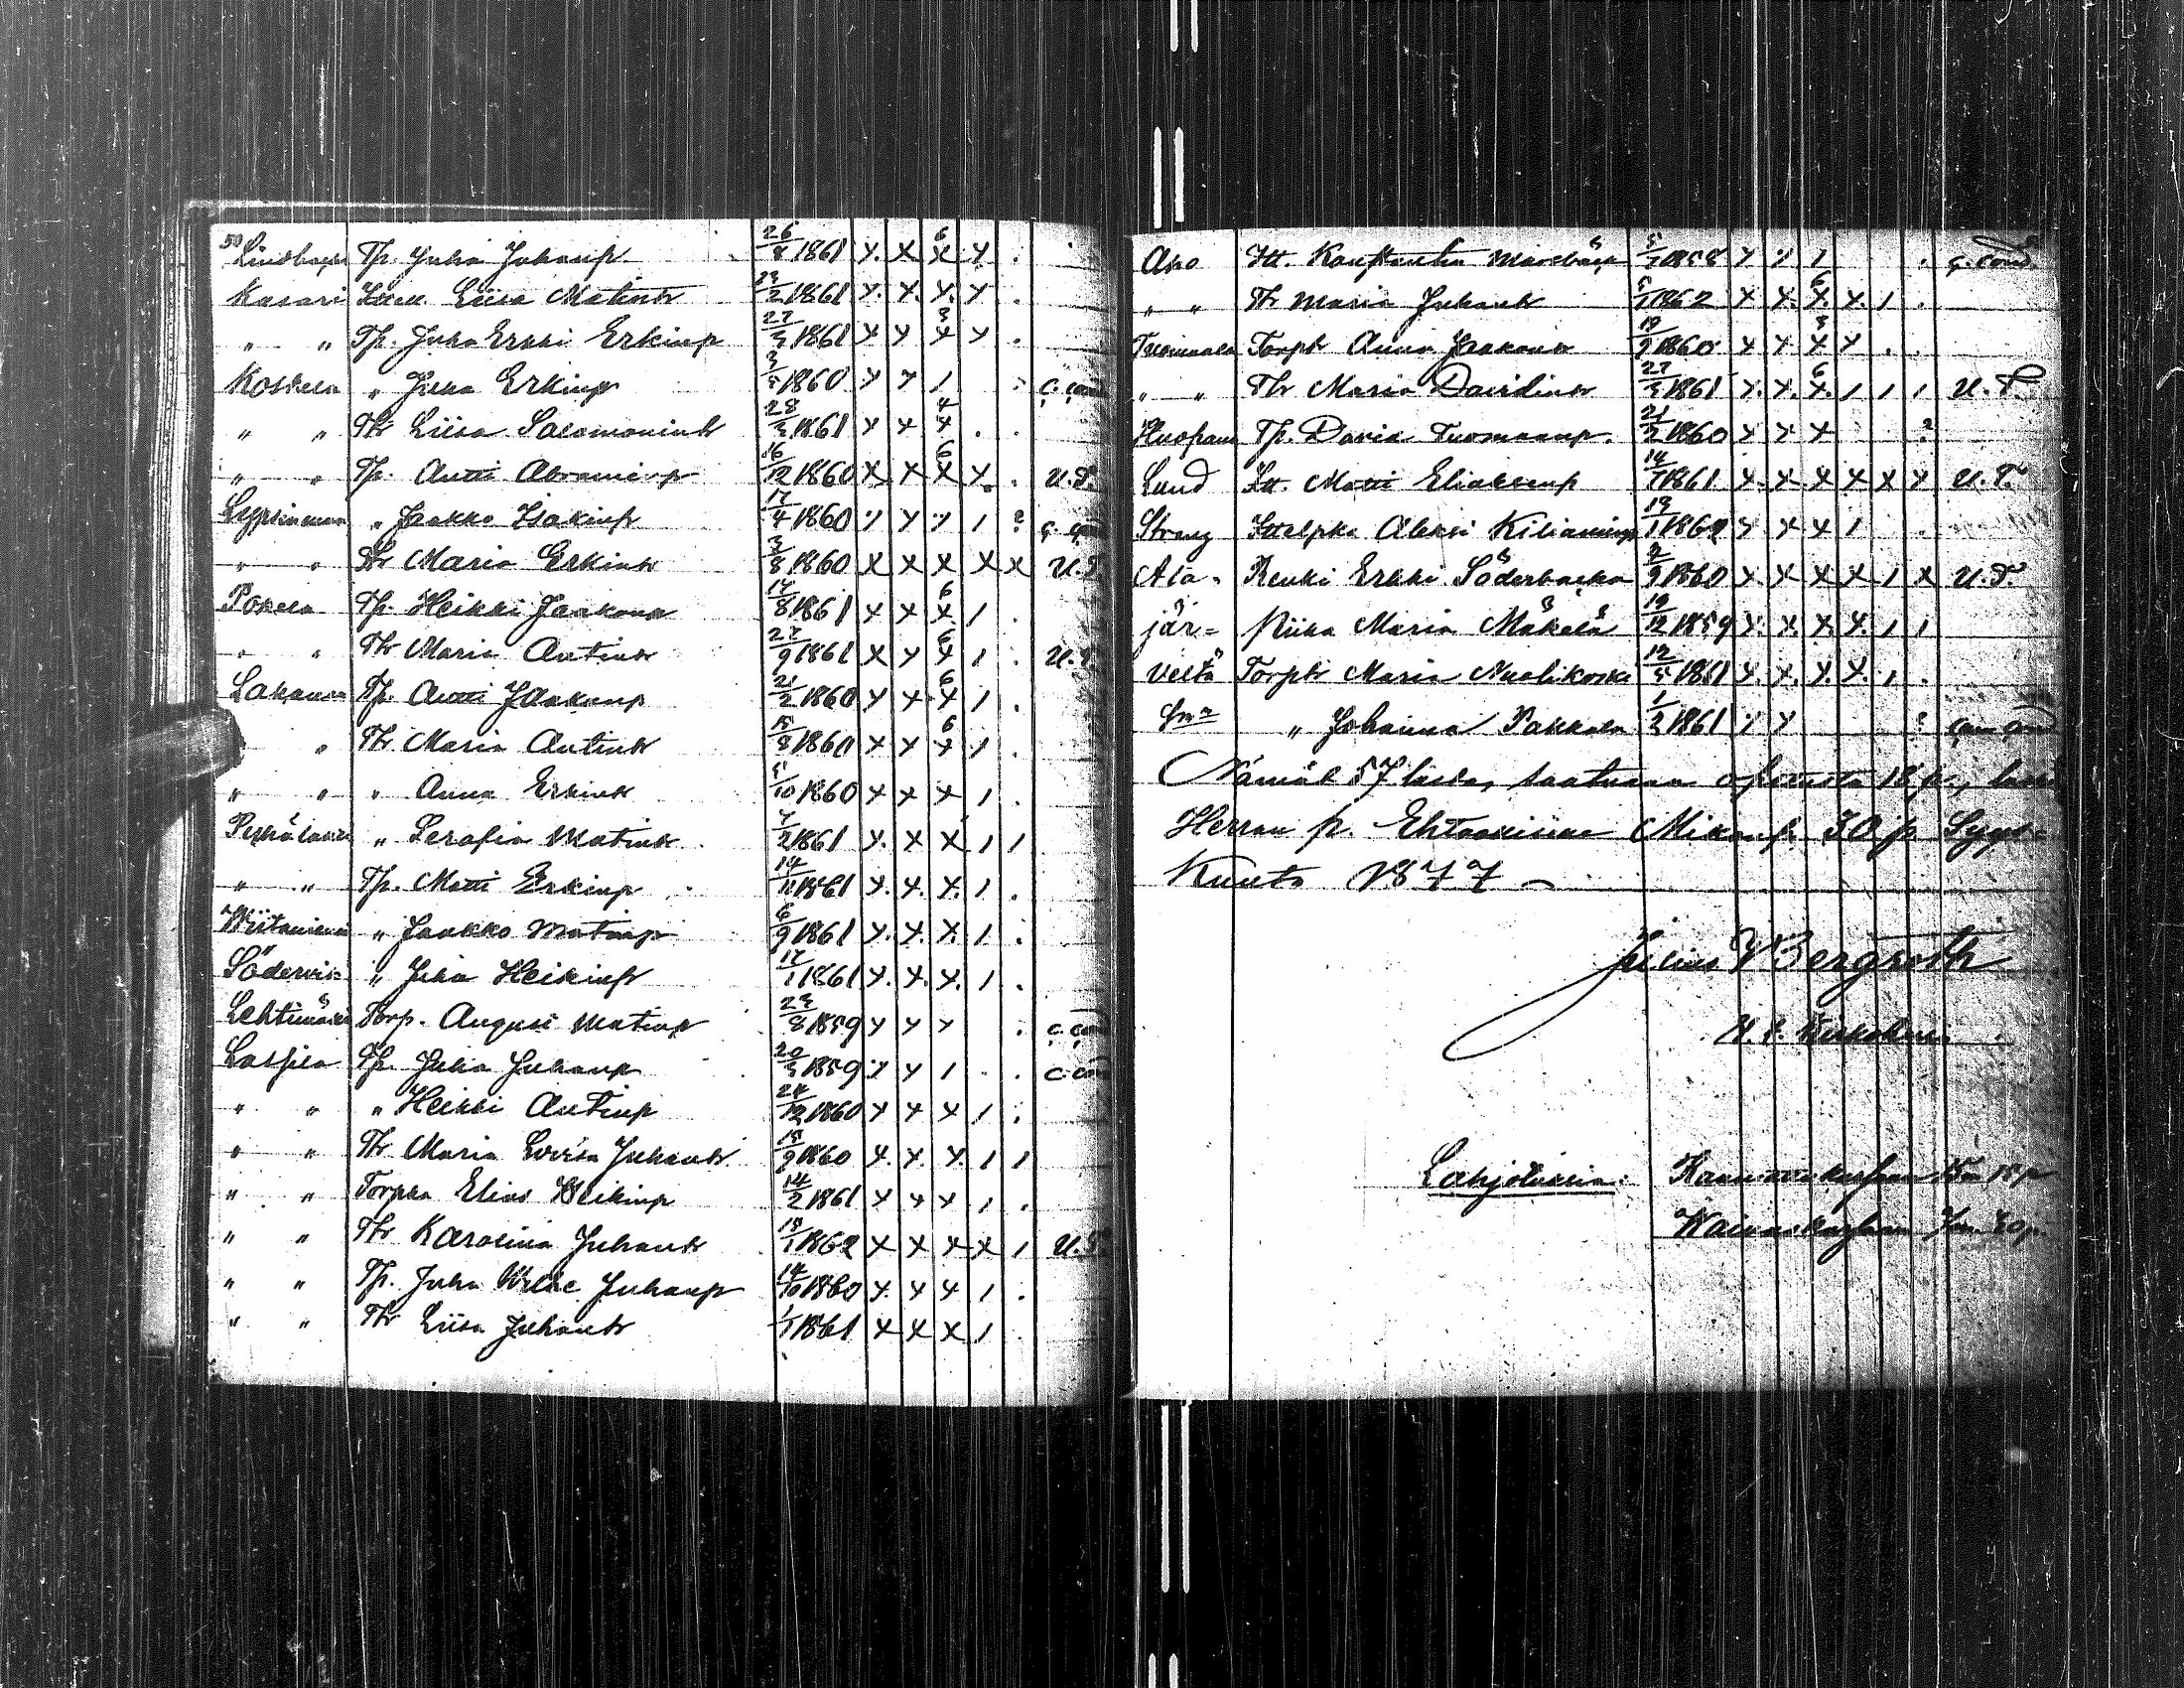 50
Lindbacka Tp. Juha Juhanp 26/8 1861 x. x x 6 x .
Kasari Liisa Matintr 23/2 1861 x. x. x. x .
" " Tp. Juha Erkki Erkinp 27/3 1861 x x x 3 x .
Koskela " Juha Erkinp 3/5 1860 x x 1 . c. cond
" " Tr Liisa Salomonintr 28/3 1861 x x x 4 . .
" " Tp. Antti Abraminp 16/12 1860 x x x 6 x . U.T.
" Jaakko Isakinp 17/4 1860 x x x 1 ? c. cond
" " Tr Maria Erkintr 3/8 1860 x x x x x U.T
Pokela Tp. Heikki Jaakonp 17/8 1861 x x x 6 1 .
" " Tr Maria Antintr 27/9 1861 x x x 6 1 . U.T.
Lakanen Tp. Antti Jaakonp 21/2 1860 x x x 6 1 .
" " Tr. Maria Antintr 15/8 1860 x x x 6 1 .
" " " Anna Erkintr 5/10 1860 x x x 1 .
" Serafia Matintr 7/2 1861 x. x x 1 1
" " Tp. Matti Erkinp 14/11 1861 x. x. x. 1 .
Wiitaniemi " Jaakko Matinp 6/9 1861 x. x. x. 1 .
Södervik " Juha Heikinp 17/1 1861 x. x. x. 1 .
Lehtimäki Torp. August Matinp 23/8 1859 x x x . c. cond
Lassila Tp. Juha Juhanp 20/3 1859 x x 1 . . c. cond
" " " Heikki Antinp 24/12 1860 x x x 1 .
" " Tr Maria Lovisa Juhantr 15/9 1860 x. x. x. 1 1
" " Torpka Elias Heikinp 14/2 1861 x x x 1 .
" " Tr Karolina Juhantr 18/1 1862 x x x x 1 U.T
" " Tp. Juha Wilhe Juhanp 14/10 1860 x. x x 1 .
" " Tr Liisa Juhantr 1/1 1861 x x x 1
Aho Itt. Konstantia Marsbäcka 5/1 1858 x x 1 . c. cond.
" " Tr Maria Juhantr 5/1 1862 x x. x. 6 x. 1 .
Tuomaala Torptr Anna Jaakontr 19/9 1860 x x x 3 x . .
" " Tr Maria Davidintr 27/3 1861 x. x. x. 6 1 1 1 U.T.
Tp. David Tuomaanp. 21/2 1860 x x x ?
Lund Itt. Matti Eliaksenp 14/7 1861 x. x. x x x x U.T.
Strang Aleksi Kilianinp 19/1 1862 x x x 1 .
Ala= Renki Erkki Söderbacka 2/9 1860 x. x x x 1 x U.T.
jär= Piika Maria Mäkelä 19/12 1859 x. x. x. x. 1 1
veltä Torptr Maria Nuolikoski 12/5 1861 x. x. x. x. 1 .
" Johanna Pakkala 1/2 1861 x x ? cum cond
Nämät 57 lasta, saatuaan opetusta 18 p.,
Herran p. Ehtoollisella Mikonp. 30 p. Syys=
Kuuta 1877
Julius W Bergroth
Lahjoituksia: